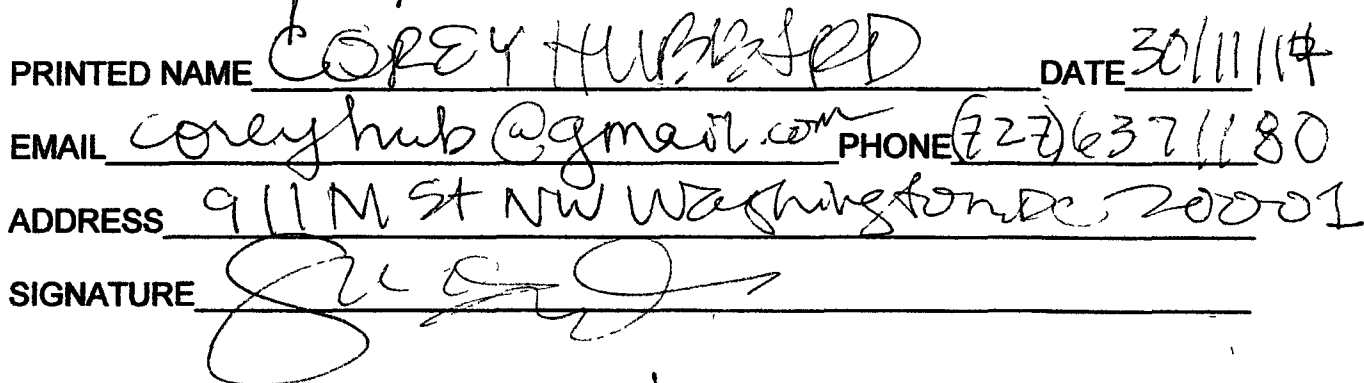 PRINTED NAME COREY HUBBARD DATE 30/11/17
EMAIL coreyhub@gmail.com PHONE (727) 637 1180
ADDRESS 911 M St NW Washington, DC, 20001
SIGNATURE